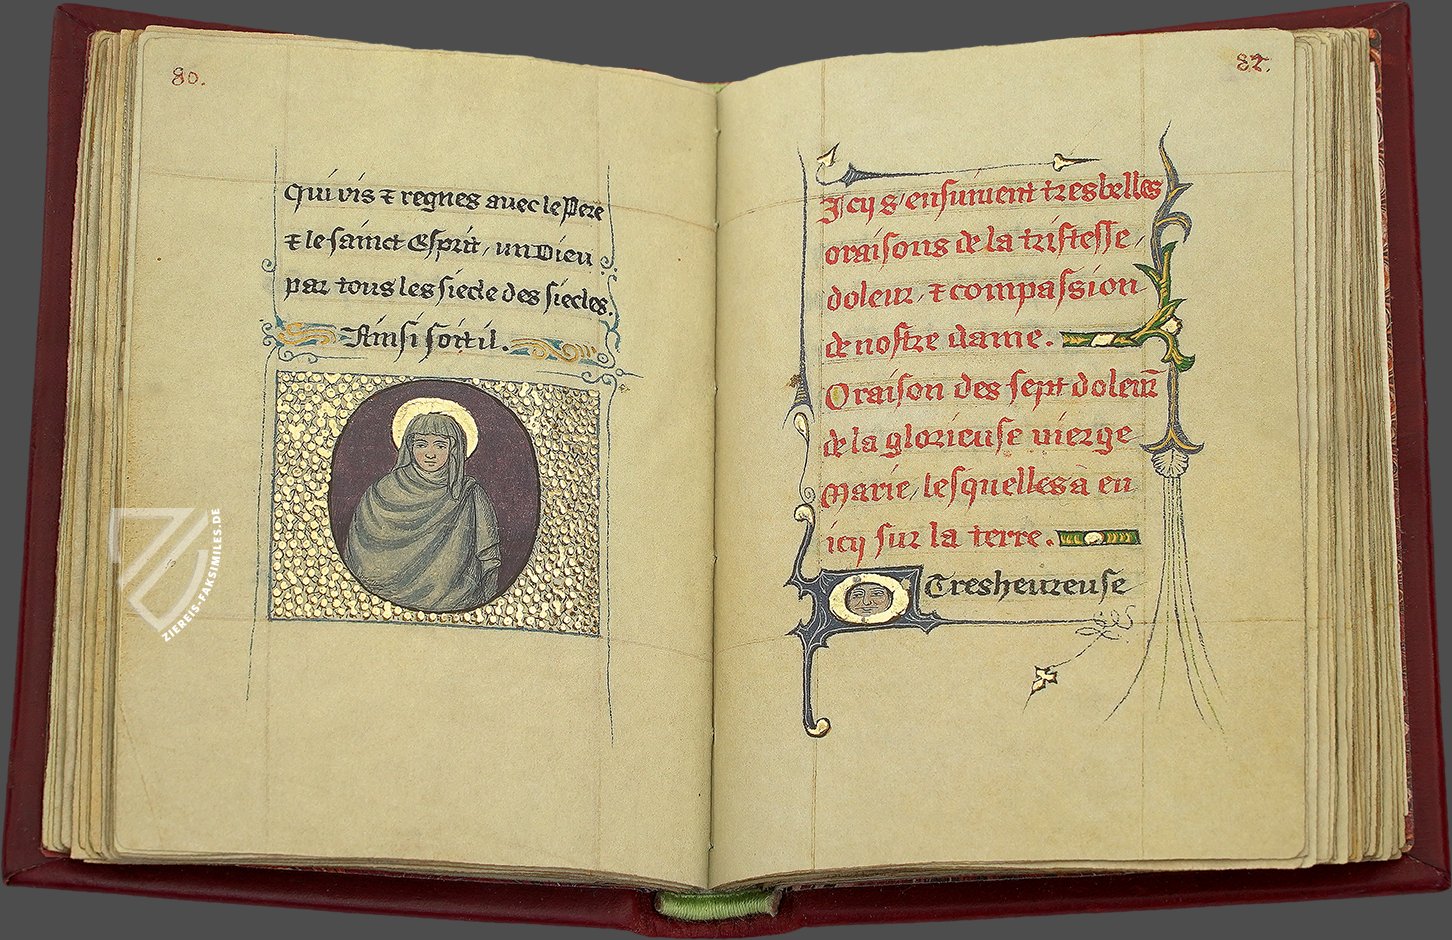 80.
Qui vis & regnes avec le Pere
& le sainct Esprit, un Dieu
par tous les siecle des siecles.
Ainsi soit il.
ZIEREIS-FAKSIMILES.DE
Icy s'ensuiuent tresbelles
oraisons de la tristesse,
doleur, & compassion
de nostre dame.
Oraison des sept doleurs
de la glorieuse uierge
Marie, lesquelles à eu
icy sur la terre.
O Tresheureuse